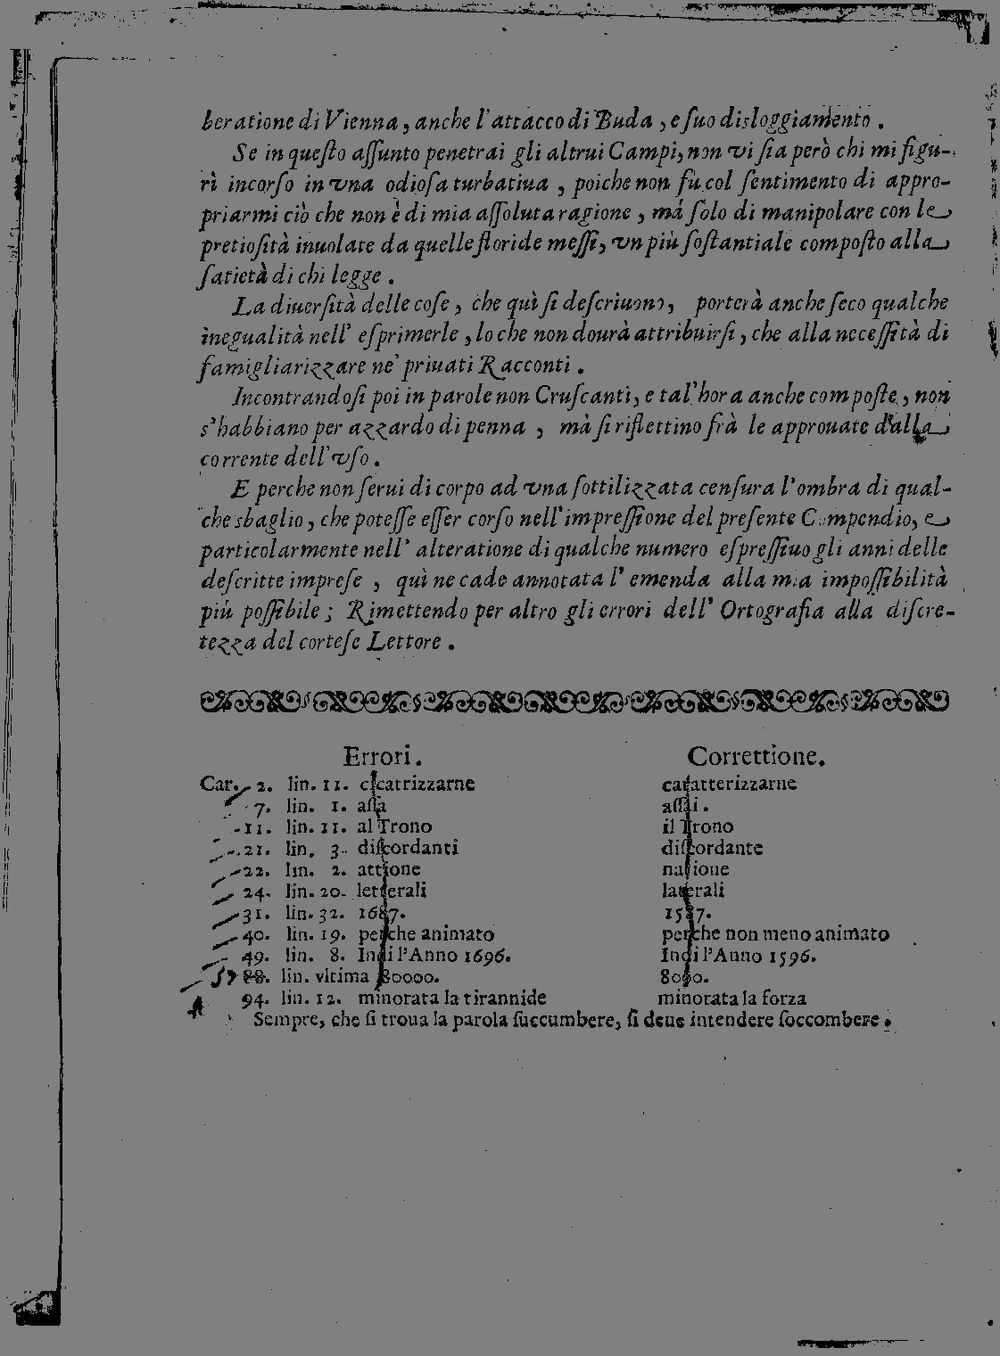 beratione di Vienna, anche l'attacco di Buda, e ſuo disloggiamento.
Se in queſto aſſunto penetrai gli altrui Campi, non vi ſia però chi mi figu-
ri incorſo in vna odioſa turbatiua, poiche non fù col ſentimento di appro-
priarmi ciò che non è di mia aſſoluta ragione, mà ſolo di manipolare con le
pretioſità inuolate da quelle floride meſſi, vn più ſoſtantiale compoſto alla
ſatietà di chi legge.
La diuerſità delle coſe, che quì ſi deſcriuono, porterà anche ſeco qualche
inegualità nell' eſprimerle, lo che non dourà attribuirſi, che alla neceſſità di
famigliarizzare ne' priuati Racconti.
Incontrandoſi poi in parole non Cruſcanti, e tal'hora anche compoſte, non
s'habbiano per azzardo di penna, mà ſi riflettino frà le approuate dalla
corrente dell'vſo.
E perche non ſerui di corpo ad vna ſottilizzata cenſura l'ombra di qual-
che sbaglio, che poteſſe eſſer corſo nell'impreſſione del preſente Compendio, e
particolarmente nell' alteratione di qualche numero eſpreſſiuo gli anni delle
deſcritte impreſe, quì ne cade annotata l' emenda alla mia impoſſibilità
più poſſibile; Rimettendo per altro gli errori dell' Ortografia alla diſcre-
tezza del corteſe Lettore.
Errori. Correttione.
Car. 2. lin. 11. cicatrizzarne caratterizzarne
7. lin. 1. aſſa aſſai.
11. lin. 11. al Trono il Trono
21. lin. 3. diſcordanti diſcordante
22. lin. 2. attione natione
24. lin. 20. letterali laterali
31. lin. 32. 1687. 1587.
40. lin. 19. perche animato perche non meno animato
49. lin. 8. Indi l'Anno 1696. Indi l'Anno 1596.
57 88. lin. vltima 80000. 8000.
94. lin. 12. minorata la tirannide minorata la forza
Sempre, che ſi troua la parola ſuccumbere, ſi deue intendere ſoccombere.